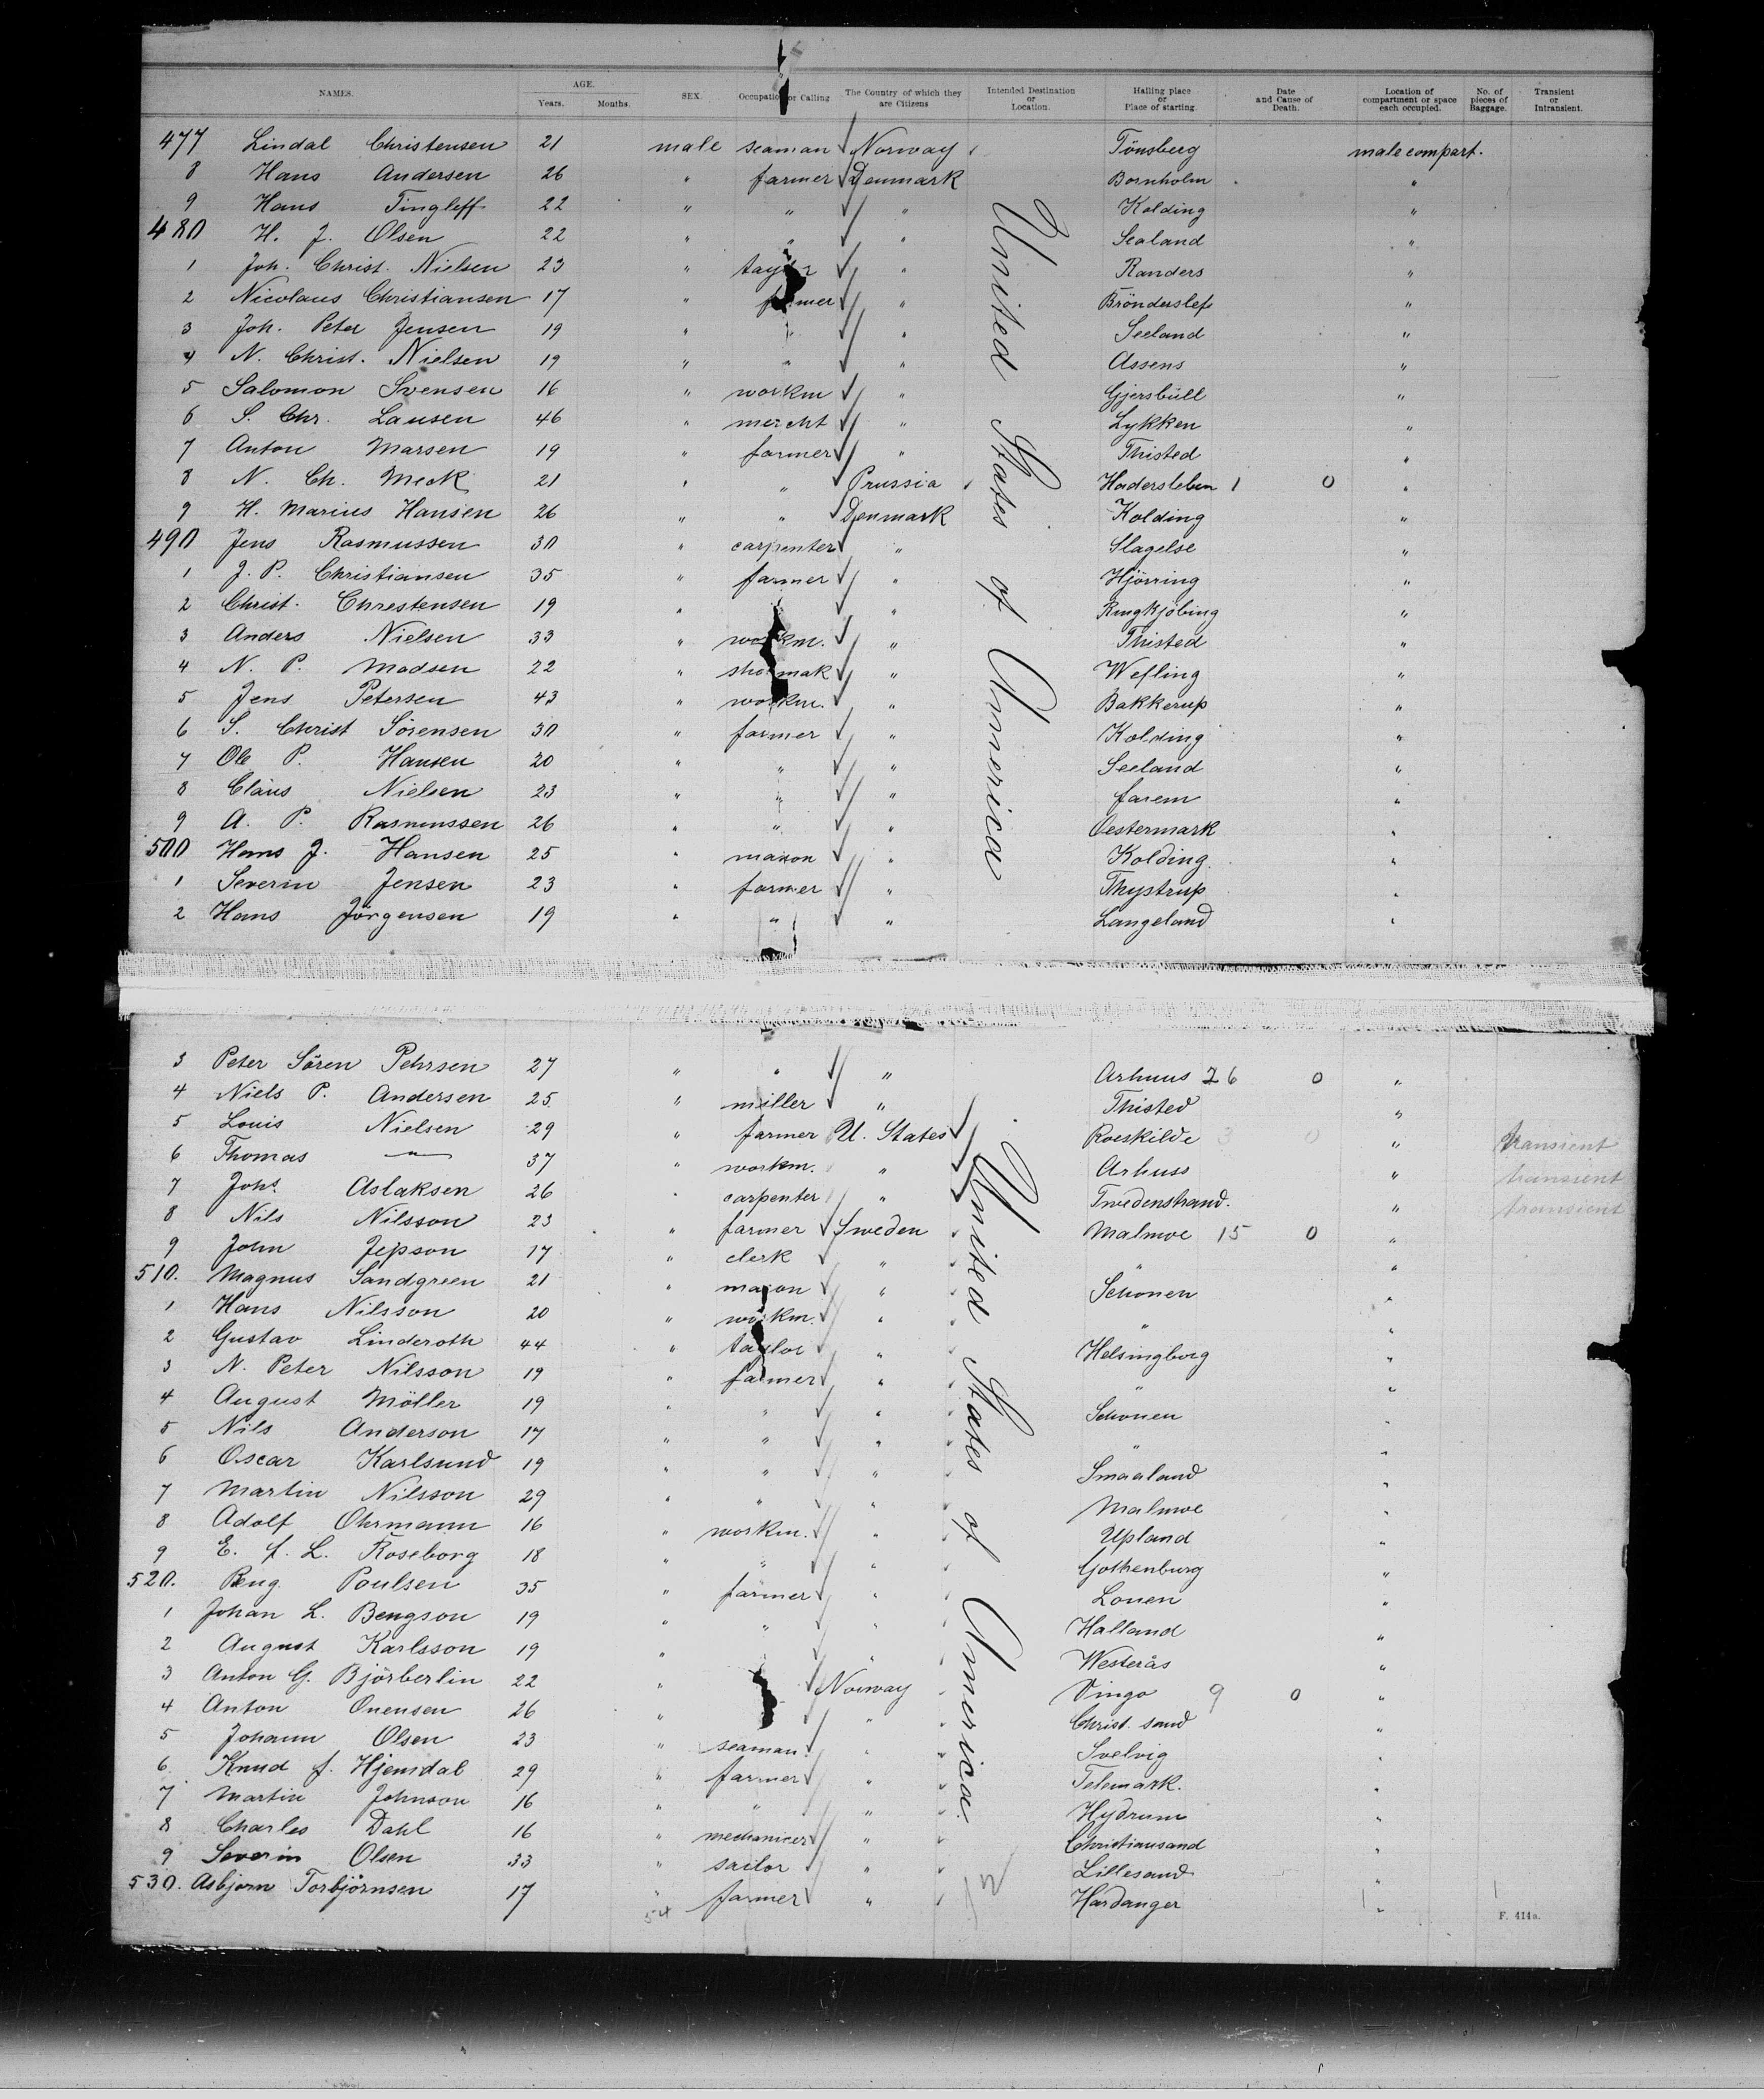 NAMES. AGE. Years. Months. SEX. Occupation or Calling The Country of which they are Citizens Intended Destination or Location. Hailing place or Place of starting. Date and Cause of Death. Location of compartment or space each occupied. No. of pieces of Baggage. Transient or Intransient.
477 Lindal Christensen 21 male seaman Norway Tönsberg male compart.
8 Hans Andersen 26 " farmer Denmark Bornholm "
9 Hans Tingleff 22 " " " Kolding "
480 H. J. Olsen 22 " " " Sealand "
1 Joh. Christ. Nielsen 23 " " Randers "
2 Nicolaus Christiansen 17 " farmer " Brönderslef "
3 Joh. Peter Jensen 19 " " " Seeland "
4 N. Christ. Nielsen 19 " " " Assens "
5 Salomon Svensen 16 " workm " Gjersbüll "
6 S. Chr. Lausen 46 " mercht " Lykken "
7 Anton Marsen 19 " farmer " Thisted "
8 N. Ch. Meck 21 " " Prussia Hadersleben 1 0 "
9 H. Marius Hansen 26 " " Denmark Kolding "
490 Jens Rasmussen 30 " carpenter " Slagelse "
1 J. P. Christiansen 35 " farmer " Hjörring "
2 Christ. Chrestensen 19 " " Ringkjöbing "
3 Anders Nielsen 33 " workm. " Thisted "
4 N. P. Madsen 22 " shoemak " Wefling "
5 Jens Petersen 43 " workm. " Bakkerup "
6 S. Christ Sörensen 30 " farmer " Kolding "
7 Ole P. Hansen 20 " " " Seeland "
8 Claus Nielsen 23 " " " farem "
9 A. P. Rasmussen 26 " " " Oestermark "
500 Hans J. Hansen 25 " mason " Kolding "
1 Severin Jensen 23 " farmer " Thystrup "
2 Hans Jörgensen 19 " " " Langeland "
United States of America
3 Peter Sören Pehrsen 27 " " " Arhuus 26 0 "
4 Niels P. Andersen 25 " miller " Thisted "
5 Louis Nielsen 29 " farmer U. States Roeskilde 3 0 " transient
6 Thomas " 37 " workm. " Arhuss " transient
7 Johs. Aslaksen 26 " carpenter " Tvedenstrand. " transient
8 Nils Nilsson 23 " farmer Sweden Malmoe 15 0 "
9 John Jepson 17 " clerk " " "
510. Magnus Sandgreen 21 " mason " Schonen "
1 Hans Nilsson 20 " workm. " " "
2 Gustav Linderoth 44 " taylor " Helsingborg "
3 N. Peter Nilsson 19 " farmer " " "
4 August Möller 19 " " " Schonen "
5 Nils Anderson 17 " " " " "
6 Oscar Karlsund 19 " " " Smaaland "
7 Martin Nilsson 29 " " " Malmoe "
8 Adolf Ohrmann 16 " workm. " Upland "
9 E. f. L. Roseborg 18 " " " Gothenburg "
520. Beng Poulsen 35 " farmer " Lonen "
1 Johan L. Bengson 19 " " " Halland "
2 August Karlsson 19 " " Westerås "
3 Anton G. Björberlin 22 " Norway Vingo 9 0 "
4 Anton Onensen 26 " " Christ. sand "
5 Johann Olsen 23 " seaman " Svelvig "
6. Knud f. Hjemdal 29 " farmer " Telemark. "
7 Martin Johnson 16 " " " Hydrum "
8 Charles Dahl 16 " mechaniker " Christiansand "
9 Severin Olsen 33 " sailor " Lillesand "
530. Asbjorn Torbjörnsen 17 " farmer " Hardanger "
United States of America.
54
F. 414a.